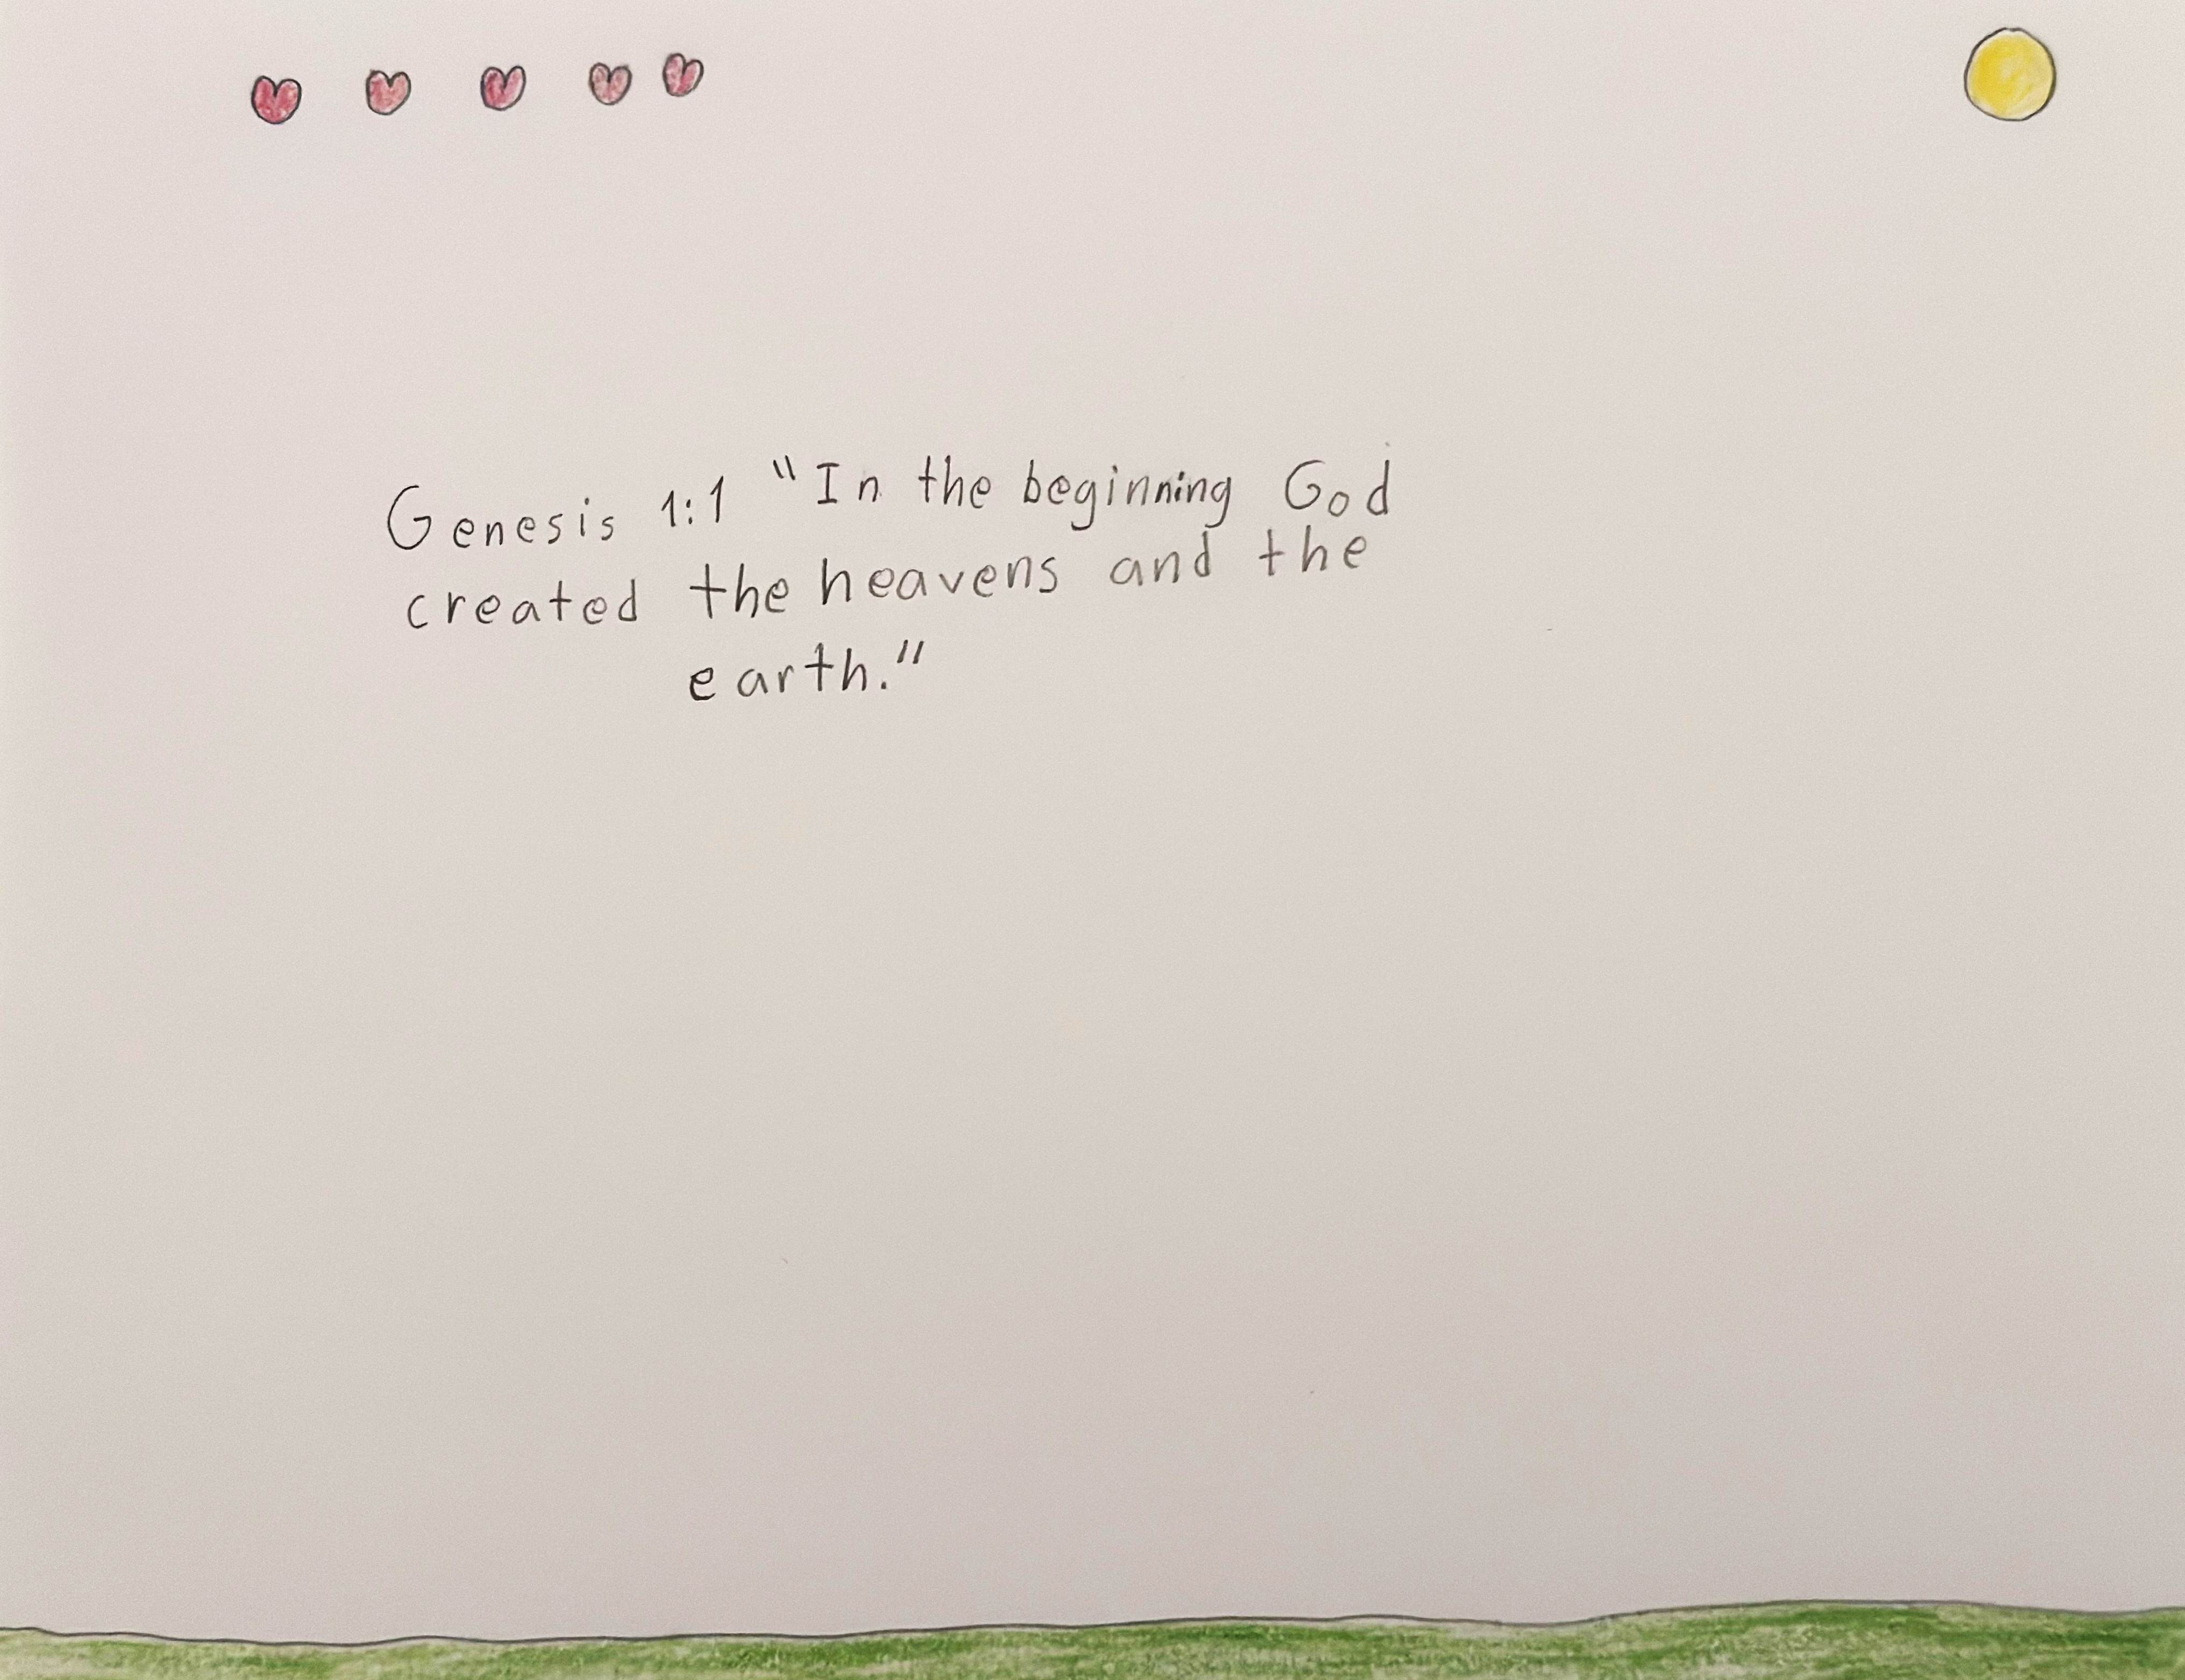 Genesis 1:1 "In the beginning God
created the heavens and the
earth."